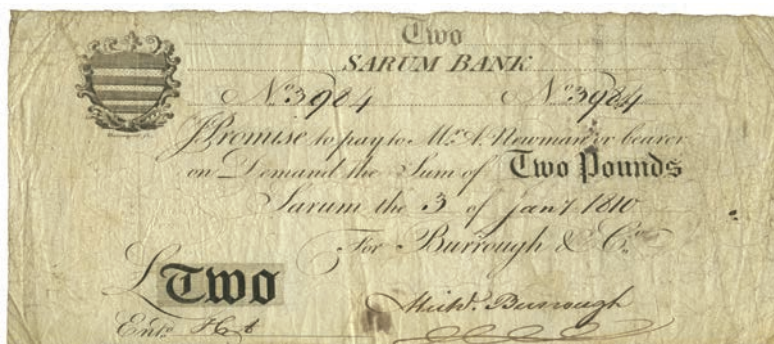 Two
SARUM BANK
No. 3984 No. 3984
I Promise to pay to Mr. A. Newman or bearer
on Demand the Sum of Two Pounds
Sarum the 3 of Jany 1810
For Burrough & Co.
£Two
Michl. Burrough
Entd.